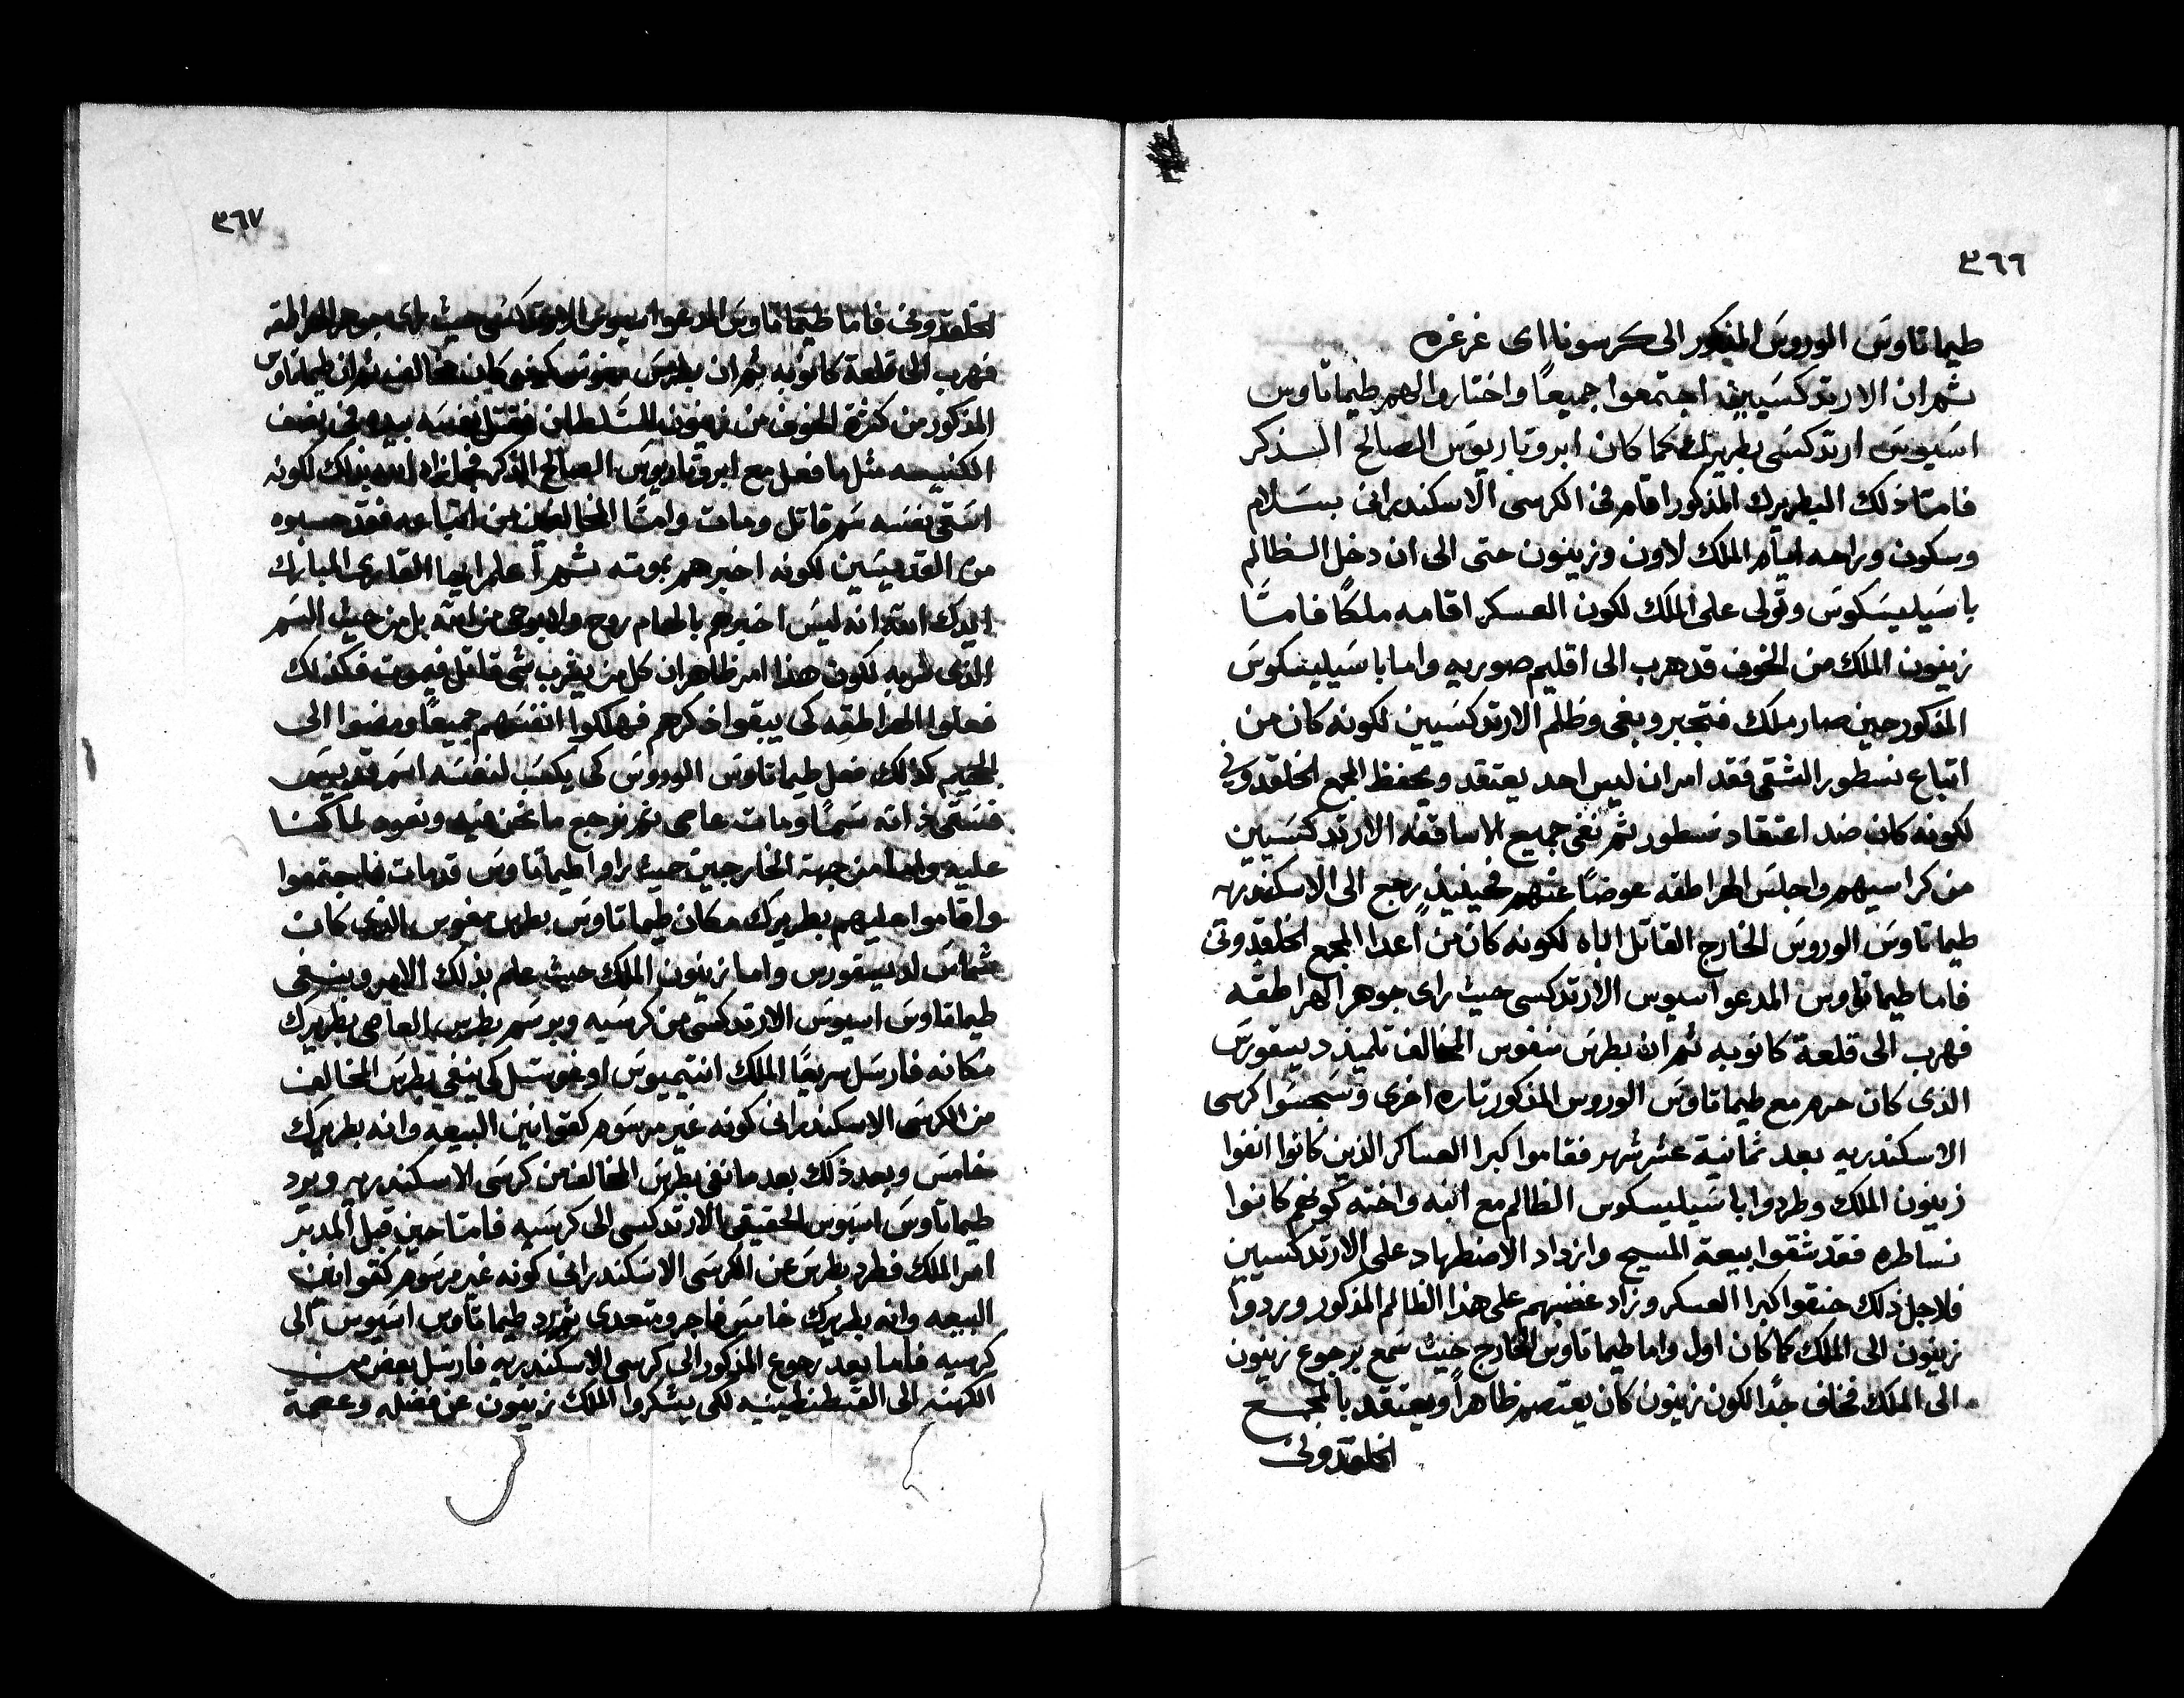 ٣٦٦
طيماتاوس الوروس المذكور الى كرسونا اى غرغره
ثم ان الارتدكسيين اجتمعوا جميعًا واختاروا لهم طيماتاوس
اسيوس ارتدكسى بطريرك كما كان ابروتاريوس الصالح الذكر
فامّا ذلك البطريرك المذكور اقام فى الكرسى الاسكندرانى بسلام
وسكون وراحه ايام الملك لاون وزينون حتى الى ان دخل الظالم
باسيليسكوس وتولى على الملك لكون العسكر اقامه ملكًا فامّا
زينون الملك من الخوف قد هرب الى اقليم صوريه واما باسيليسكوس
المذكور حين صار ملك فتجبر وبغى وظلم الارتدكسيين لكونه كان من
اتباع نسطور الشقى فقد امر ان ليس احد يعتقد ويحفظ المجمع الخلقدونى
لكونه كان ضد اعتقاد نسطور ثم نفى جميع الاساقفه الارتدكسيين
من كراسيهم واجلس الهراطقه عوضًا عنهم فحينيذٍ رجع الى الاسكندريه
طيماتاوس الوروس الخارج القاتل اباه لكونه كان من اعدا المجمع الخلقدونى
فاما طيماتاوس المدعو اسيوس الارتدكسى حيث راى جوهر الهراطقه
فهرب الى قلعة كانوبه ثم ان بطرس منغوس المخالف تلميذ ديسقورس
الذى كان حرم مع طيماتاوس الوروس المذكور تاره اخرى وسجسوا كرسى
الاسكندريه بعد ثمانية عشر شهر فقاموا كبرا العساكر الذين كانوا انفوا
زينون الملك وطردوا باسيليسكوس الظالم مع ابنه واخته كونهم كانوا
نساطره فقد شقوا بيعة المسيح وازداد الاضطهاد على الارتدكسيين
فلاجل ذلك حنقوا كبرا العسكر وزاد غضبهم على هذا الظالم المذكور وردوا
زينون الى الملك كما كان اول واما طيماتاوس الخارج حيث سمع برجوع زينون
الى الملك فخاف جدًا لكون زينون كان يعتصم ظاهرًا ويعتقد بالمجمع
الخلقدونى
٣٦٧
الخلقدونى فاما طيماتاوس المدعو اسيوس الارتدكسى حيث راى جوهر الهراطقه
فهرب الى قلعة كانوبه ثم ان بطرس كان مخالف ثم ان طيماتاوس
المذكور من كثرة الخوف من زينون السلطان فقتل نفسه بيده فى نصف
الكنيسه مثل ما فعل مع ابروتاريوس الصالح الذكر لكونه
اسقى نفسه سم قاتل ومات وامّا المخالفين من اتباعه فقد حسبوه
من القديسين لكونه اخبرهم بموته ثم اعلم ايها القارى المبارك
ايدك الله انه ليس اخبرهم بالهام روح ولا بوحى من الله بل من حيث السم
الذى شربه لكون هذا امر ظاهر ان كل من يشرب شى قاتل فيموت فكذلك
فعلوا الهراطقه كى يبقوا ذكرهم فهلكوا انفسهم جميعًا ومضوا الى
الجحيم كذلك فعل طيماتاوس الوروس كى يكسب لنفسه اسم قديس
فسقى ذاته سمًا ومات عاصى ثم نرجع ما نحن فيه ونعود لما كنا
عليه واما من جهة الخارجين حيث راوا طيماتاوس قد مات فاجتمعوا
واقاموا عليهم بطريرك مكان طيماتاوس بطرس منغوس الذى كان
شماس لديسقورس واما زينون الملك حيث علم بذلك الامر وبنفى
طيماتاوس اسيوس الارتدكسى من كرسيه وبرسم بطرس العاصى بطريرك
مكانه فارسل سريعًا الملك انتيميوس اوغوستل كى ينفى بطرس المخالف
من الكرسى الاسكندرانى كونه غير مرسوم كقوانين البيعه وانه بطريرك
خامس وبعد ذلك بعد ما نفى بطرس المخالف من كرسى الاسكندريه ويرد
طيماتاوس اسيوس الحقيقى الارتدكسى الى كرسيه فامّا حين قبل المدبر
امر الملك فطرد بطرس عن الكرسى الاسكندرانى كونه غير مرسوم كقوانين
البيعه وانه بطريرك خامس فاجر ومتعدى ثم رد طيماتاوس اسيوس الى
كرسيه فاما بعد رجوع المذكور الى كرسى الاسكندريه فارسل بعض من
الكهنه الى القسطنطينيه لكى يشكروا الملك زينون عن فضله وعصمة